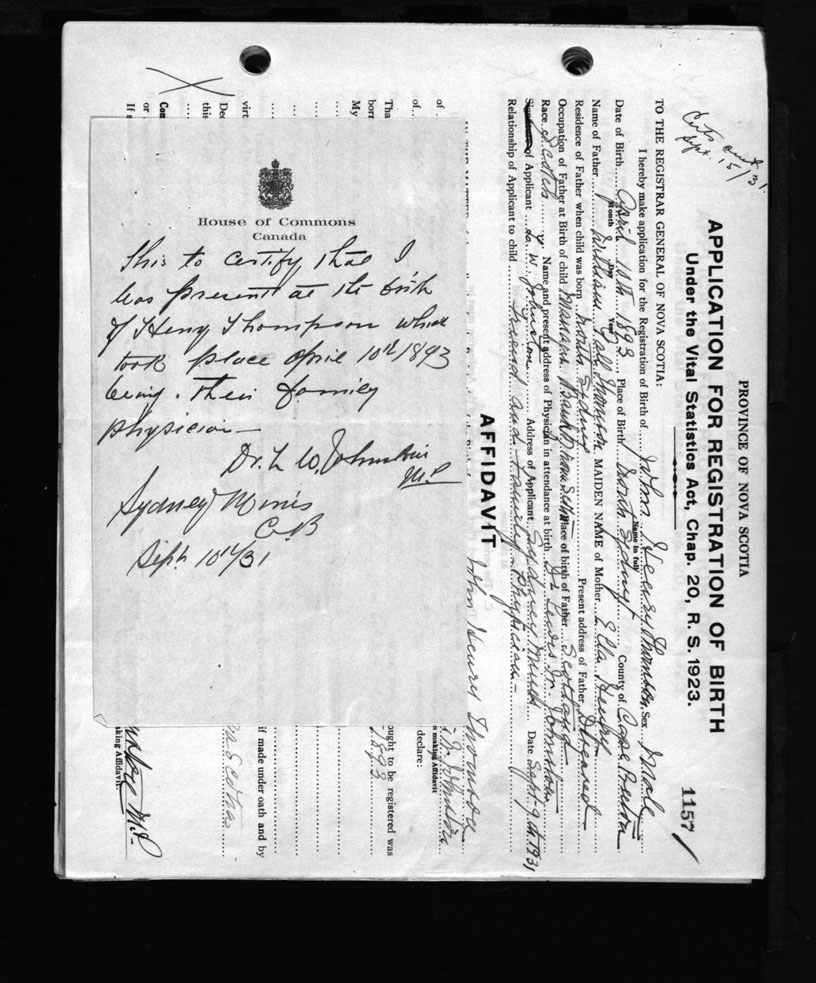 Certs out
Sept. 15/31.
PROVINCE OF NOVA SCOTIA
APPLICATION FOR REGISTRATION OF BIRTH
Under the Vital Statistics Act, Chap. 20, R. S. 1923.
1157
TO THE REGISTRAR GENERAL OF NOVA SCOTIA:
I hereby make application for the Registration of Birth of John Henry Thomson Sex Male
Name in full
Date of Birth April 10th 1893 Place of Birth North Sydney County of Cape Breton
Month Day Year
Name of Father William Thomson MAIDEN NAME of Mother Ella Henry
Residence of Father when child was born North Sydney Present address of Father Deceased
Occupation of Father at Birth of child Manager Bank Nova Scotia Place of birth of Father Scotland
Race Scotch Name and present address of Physician in attendance at birth Dr Lewis W. Johnston
of Applicant L. W. Johnston Address of Applicant Sydney Mines Date Sept. 9th 1931
Relationship of Applicant to child friend and Family Physician
AFFIDAVIT
John Henry Thomson
of
n making Affidavit
of
declare:
Tha
ought to be registered was
born
1893
My
virt
if made under oath and by
De
this
Com
or
If s
aking Affidavit.
House of Commons
Canada
This to certify that I
was present at the birth
of Henry Thompson which
took place April 10th 1893
being their family
physician—
Dr. L W. Johnston
M.P.
Sydney Mines
C.B
Sept. 10th/31